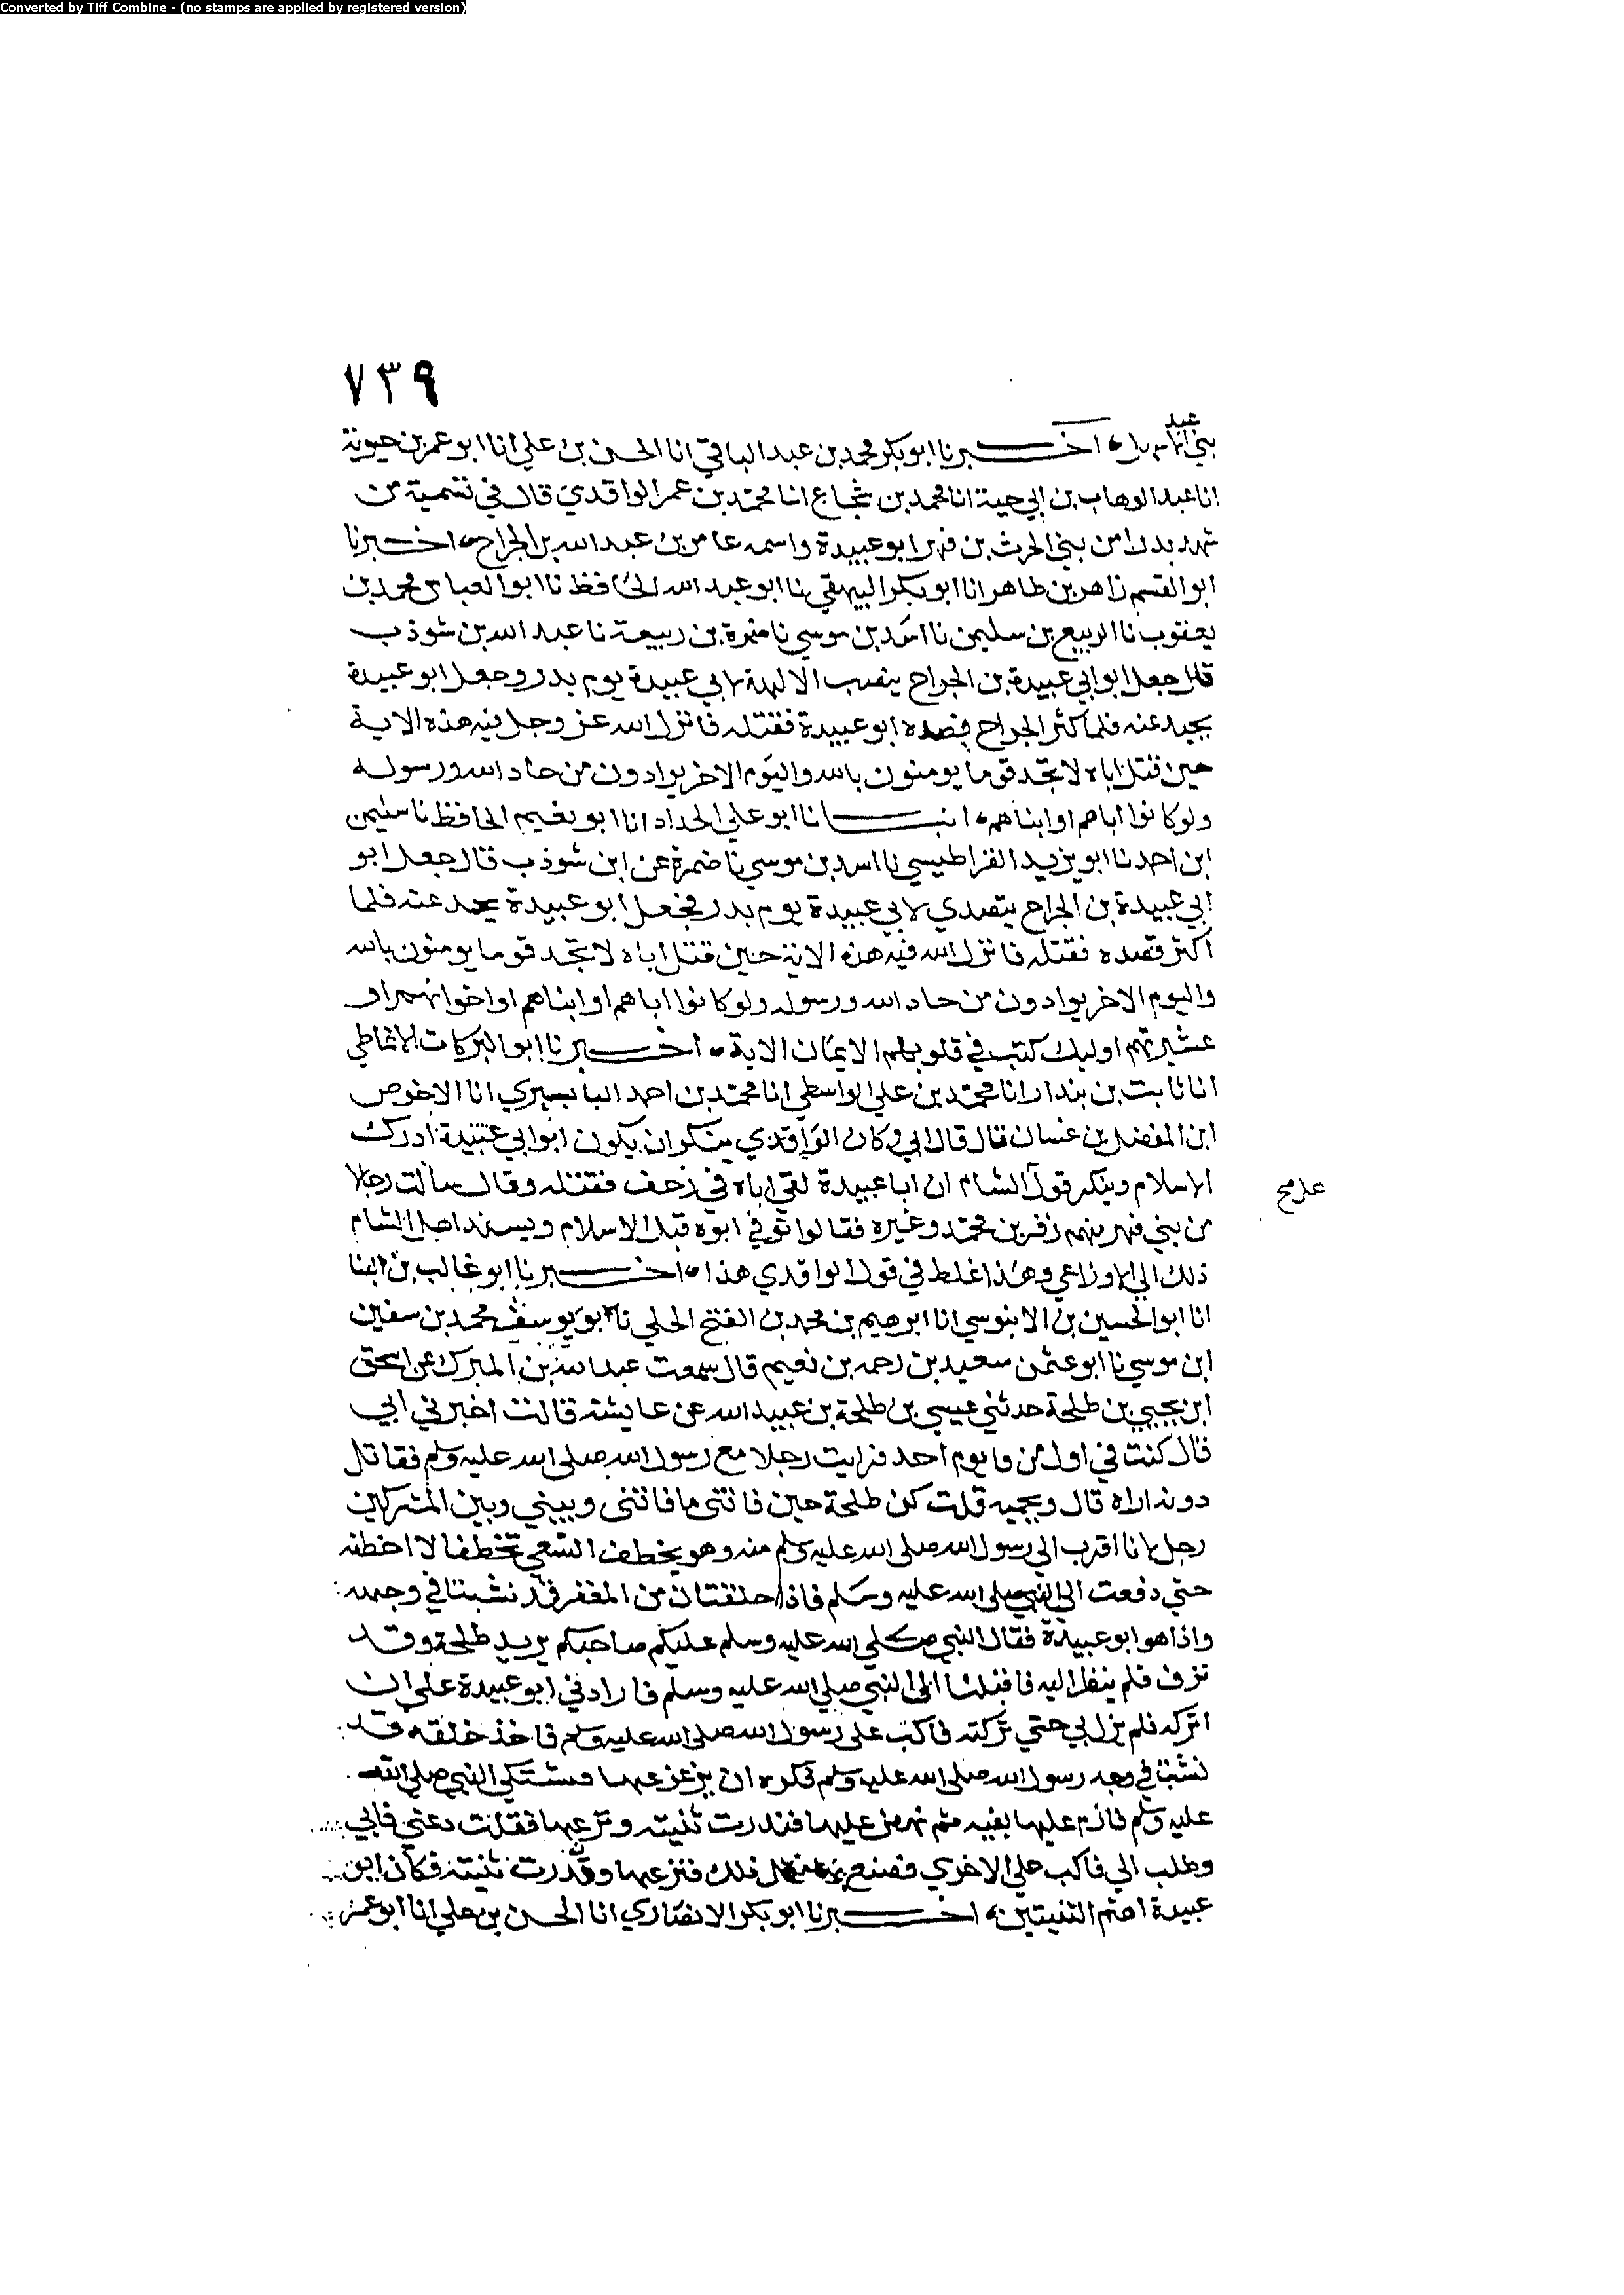 Converted by Tiff Combine - (no stamps are applied by registered version)
٧٣٩
عبد
بني اخبرنا ابو بكر محمد بن عبد الباقي انا الحسن بن علي انا ابو عمر بن حيوية
انا عبد الوهاب بن ابي حية انا محمد بن شجاع انا محمد بن عمر الواقدي قال في تسمية من
شهد بدرا من بني الحرث بن فهر ابو عبيدة واسمه عامر بن عبد الله بن الجراح اخبرنا
ابو القسم زاهر بن طاهر انا ابو بكر البيهقي نا ابو عبد الله الحافظ نا ابو العباس محمد بن
يعقوب نا الربيع بن سليمن نا اسد بن موسي نا ضمرة بن ربيعة نا عبد الله بن شوذب
قال جعل ابو ابي عبيدة بن الجراح ينصب الالهة لابي عبيدة يوم بدر وجعل ابو عبيدة
يحيد عنه فلما كثر الجراح قصده ابو عبيدة فقتله فانزل الله عز وجل فيه هذه الاية
حين قتل اباه لا تجد قوما يومنون بالله واليوم الاخر يوادون من حاد الله ورسوله
ولو كانوا اباهم او ابناهم انبانا ابو علي الحداد انا ابو نعيم الحافظ نا سليمن
ابن احمد نا ابو يزيد القراطيسي نا اسد بن موسي نا ضمرة عن ابن شوذب قال جعل ابو
ابي عبيدة بن الجراح يتصدي لابي عبيدة يوم بدر فجعل ابو عبيدة يحيد عنه فلما
اكثر قصده فقتله فانزل الله فيه هذه الاية حين قتل اباه لا تجد قوما يومنون بالله
واليوم الاخر يوادون من حاد الله ورسوله ولو كانوا اباهم او ابناهم او اخوانهم او
عشيرتهم اوليك كتب في قلوبهم الايمان الاية اخبرنا ابو البركات الانماطي
انا ثابت بن بندار انا محمد بن علي الواسطي انا محمد بن احمد البابسيري انا الاحوص
ابن المفضل بن غسان قال قال ابي وكان الواقدي ينكر ان يكون ابو ابي عبيدة ادرك
الاسلام وينكر قول الشام ان ابا عبيدة لقي اباه في زحف فقتله وقال سالت رجلا
من بني فهر منهم زفر بن محمد وغيره فقالوا توفي ابوه قبل الاسلام ويسند اهل الشام
ذلك الي الاوزاعي وهذا غلط في قول الواقدي هذا اخبرنا ابو غالب بن البنا
انا ابو الحسين بن الابنوسي انا ابرهيم بن محمد بن الفتح الجلي نا ابو يوسف محمد بن سفين
ابن موسي نا ابو عثمن سعيد بن رحمه بن نعيم قال سمعت عبد الله بن المبرك عن اسحق
ابن يحيي بن طلحة حدثني عيسي بن طلحة بن عبيد الله عن عايشة قالت اخبرني ابي
قال كنت في اول من فا يوم احد فرايت رجلا مع رسول الله صلى الله عليه وسلم فقاتل
دونه اراه قال ويحميه قلت كن طلحة حين فاتني ما فاتني وبيني وبين المشركين
رجل لانا اقرب الي رسول الله صلى الله عليه وسلم منه وهو يخطف السعي تخطفا لا اخطفه
حتي دفعت الي النبي صلى الله عليه وسلم فاذا حلقتان من المغفر قد نشبتا في وجهه
واذا هو ابو عبيدة فقال النبي صلي الله عليه وسلم عليكم صاحبكم يريد طلحة وقد
نزف فلم ينظر اليه فاقبلنا الي النبي صلي الله عليه وسلم فارادني ابو عبيدة علي ان
اتركه فلم يزل بي حتي تركته فاكب على رسول الله صلى الله عليه وسلم فاخذ حلقه قد
نشبت في وجه رسول الله صلى الله عليه وسلم فكره ان يزعزعها فيشتكي النبي صلي الله
عليه وسلم فازم عليها بفيه ثم نهض عليها فندرت ثنيته ونزعها فقلت دعني فابي
وطلب الي فاكب علي الاخري فصنع مثل ذلك فنزعها وندرت ثنيته فكان ابن
عبيدة اهتم الثنيتين اخبرنا ابو بكر الانصاري انا الحسن بن علي انا ابو عمر